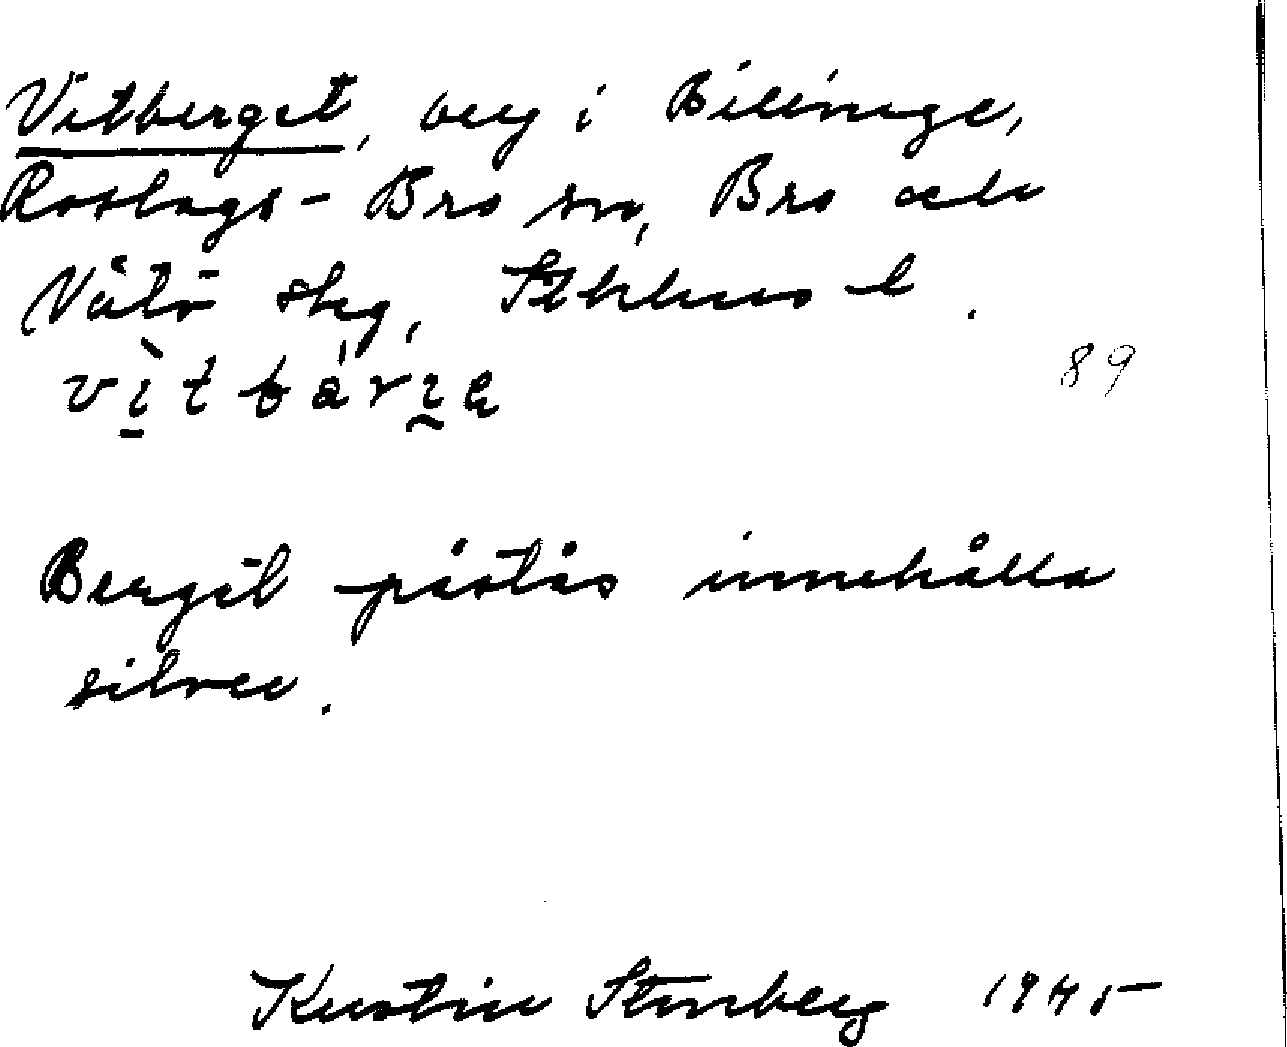 Vitberget, berg i Billinge,
Roslags-Bro sn, Bro och
Vätö skg, Sthlms l.
89
Berget påstås innehålla
silver.
Kerstin Stenberg 1945